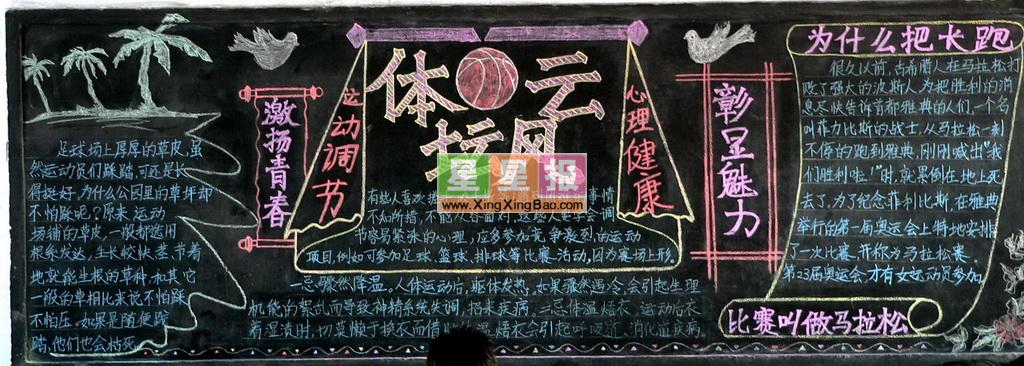 足球场上厚厚的草皮,虽
然运动员们踩踏,可还是长
得挺好,为什么公园里的草坪却
不怕踩呢?原来,运动
场铺的草皮一般都选用
根系发达,生长较快,节着
地就能生根的草种,和其它
一般的草相比来说不怕踩
不怕压,如果是随便踩
踏,他们也会枯死
激扬青春
运动调节
体坛风云
心理健康
星星报
www.XingXingBao.com
有些人喜欢
事情
不知所措,不能从容面对,这些人学会调
节容易紧张的心理,应多参加竞争激烈的运动
项目,例如可参加足球,篮球,排球等比赛活动,因为赛场上形
一忌骤然降温。人体运动后,躯体发热,如果骤然遇冷,会引起生理
机能的紊乱而导致神精系统失调,招来疾病,二忌体温熄衣,运动后衣
着湿渍时,切莫懒于换衣而借
熄衣会引起呼吸道,消化道疾病,
彰显魅力
为什么把长跑
很久以前,古希腊人在马拉松打
败了强大的波斯人,为把胜利的消
息尽快告诉首都雅典的人们,一个名
叫菲力比斯的战士,从马拉松一刻
不停的跑到雅典,刚刚喊出"我
们胜利啦!"时,就累倒在地上死
去了,为了纪念菲利比斯,在雅典
举行的第一届奥运会上特地安排
了一次比赛,并称为马拉松赛,
第23届奥运会,才有女运动员参加,
比赛叫做马拉松